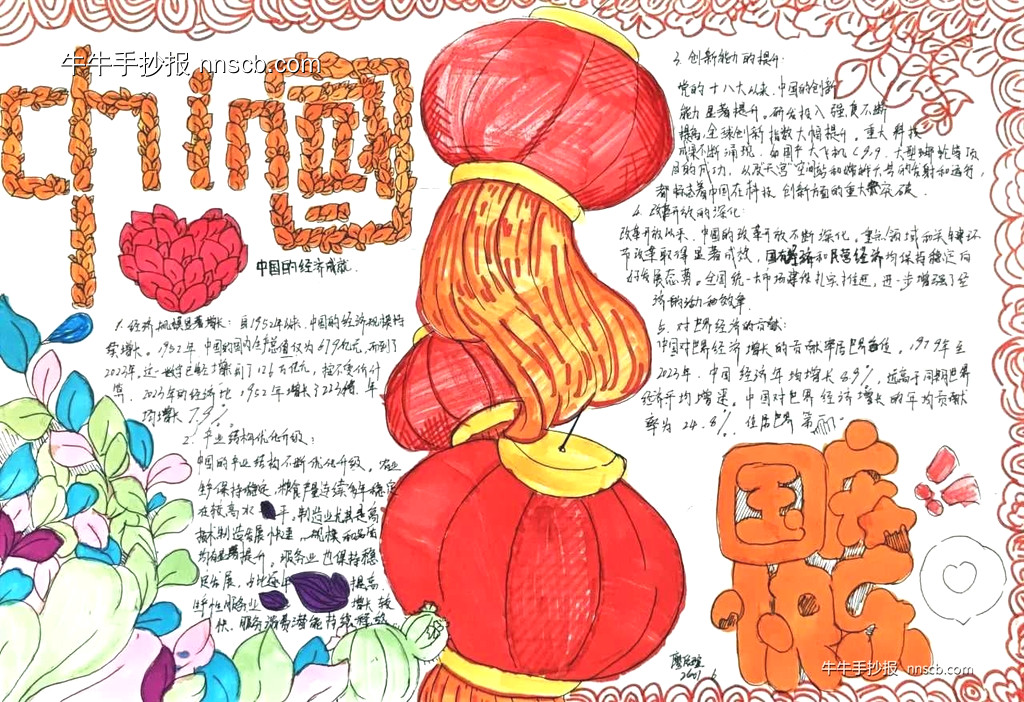 牛牛手抄报 nnscb.com
china
中国的经济成就.
1. 经济规模显著增长：自1952年以来，中国的经济规模持
续增长。1952年中国的国内生产总值仅为679亿元，而到了
2023年，这一数字已经增长到了126万亿元，按不变价计
算，2023年的经济比1952年增长了223倍，年
均增长7.9%.
2. 产业结构优化升级：
中国的产业结构不断优化升级。农业
生产保持稳定，粮食产量连续多年稳定
在较高水平。制造业尤其是高
技术制造发展快速，规模和
均有显著提升。服务业也保持稳
定发展，占比逐年提高，
服务业增长较
快，服务消费潜能持续释放
3. 创新能力的提升:
党的十八大以来，中国的创新
能力显著提升。研发投入强度不断
提高，全球创新指数大幅提升。重大科技
成果不断涌现，如国产大飞机C919、大型邮轮等项
目的成功，以及天宫空间站和嫦娥六号的发射和运行，
都标志着中国在科技创新方面的重大突破.
4. 改革开放的深化:
改革开放以来，中国的改革开放不断深化，重点领域和关键环
节改革取得显著成效，国有经济和民营经济均保持稳定向
好发展态势。全国统一大市场建设扎实推进，进一步增强了经
济的活力和效率.
5. 对世界经济的贡献:
中国对世界经济增长的贡献率居世界首位。1979年至
2023年，中国经济年均增长8.9%，远高于同期世界
经济平均增速。中国对世界经济增长的年均贡献
率为24.8%，位居世界第一。
国庆
快乐
2401 6
牛牛手抄报 nnscb.com